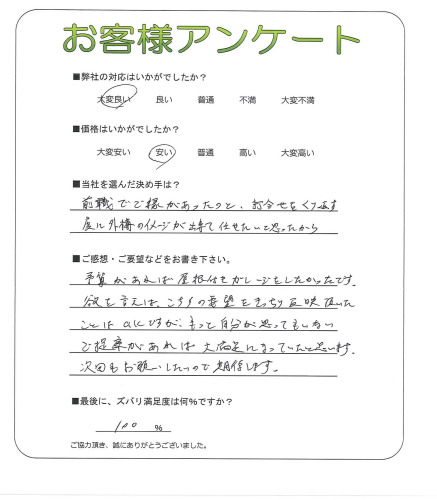 お客様アンケート
■弊社の対応はいかがでしたか？
大変良い 良い 普通 不満 大変不満
■価格はいかがでしたか？
大変安い 安い 普通 高い 大変高い
■当社を選んだ決め手は？
前職でご縁があったのと、打合せをくり返す
度に外構のイメージが出来て任せたいと思ったから
■ご感想・ご要望などをお書き下さい。
予算があれば屋根付きガレージをしたかったです。
欲を言えば、こちらの要望をきっちり反映頂いた
ことはOKですが、もっと自分が思ってもいない
ご提案があれば大満足になっていたと思います。
次回もお願いしたいので期待します。
■最後に、ズバリ満足度は何％ですか？
100 ％
ご協力頂き、誠にありがとうございました。